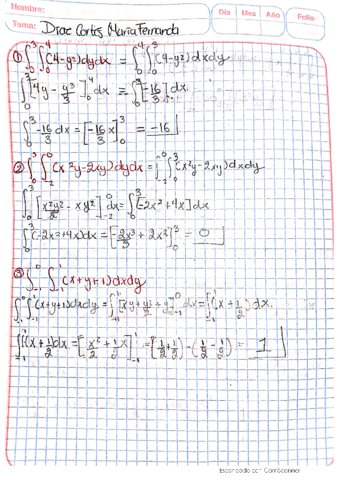 Nombre:
Día Mes Año Folio
Tema: Diaz Cortés María Fernanda
① ∫₀³ ∫₀⁴ (4-y²) dydx = ∫₀⁴ ∫₀³ (4-y²) dxdy
∫₀³ [4y - y³/3]₀⁴ dx = ∫₀³ [-16/3] dx.
∫₀³ -16/3 dx = [-16/3 x]₀³ = -16
② ∫₀³ ∫₋₂⁰ (x²y-2xy) dydx = ∫₋₂⁰ ∫₀³ (x²y-2xy) dxdy
∫₀³ [x²y²/2 - xy²]₋₂⁰ dx = ∫₀³ [-2x²+4x] dx
∫₀³ (-2x²+4x) dx = [-2x³/3 + 2x²]₀³ = 0
③ ∫₋₁⁰ ∫₋₁¹ (x+y+1) dxdy
∫₋₁⁰ ∫₋₁¹ (x+y+1) dxdy = ∫₋₁¹ [xy + y²/2 + y]₋₁⁰ dx = ∫₋₁¹ (x + 1/2) dx.
∫₋₁¹ (x + 1/2 dx = [x²/2 + 1/2 x]₋₁¹ = [1/2 + 1/2] - (1/2 - 1/2) = 1
Escaneado con CamScanner